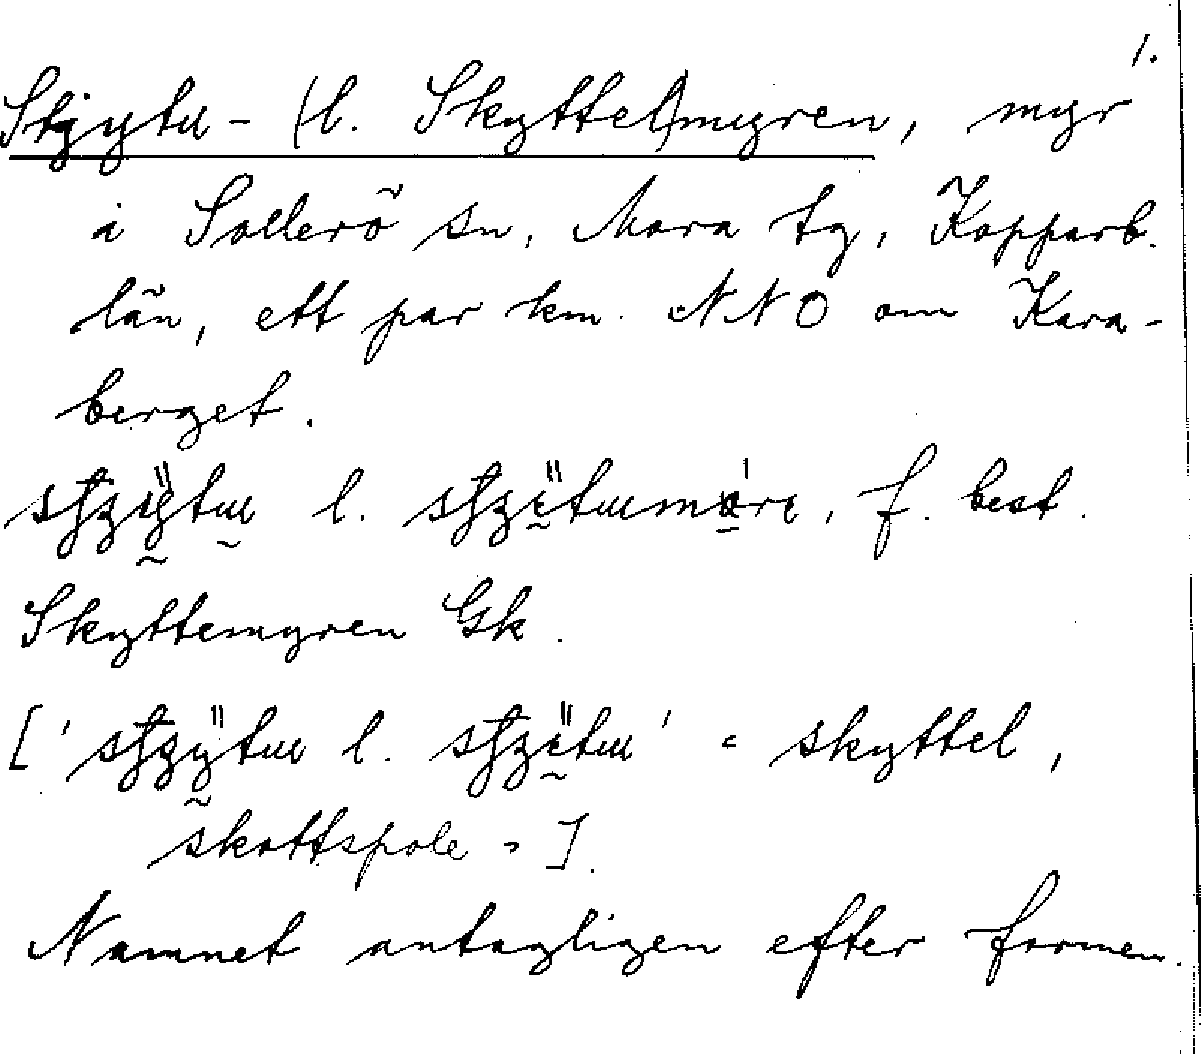 1.
Stjytu- (l. Skyttel)myren, myr
i Sollerö sn, Mora tg, Kopparb.
län, ett par km. NNO om Kara-
berget.
l. f. best.
Skyttemyren Gk.
[' l. ' = skyttel,
skottspole =].
Namnet antagligen efter formen.